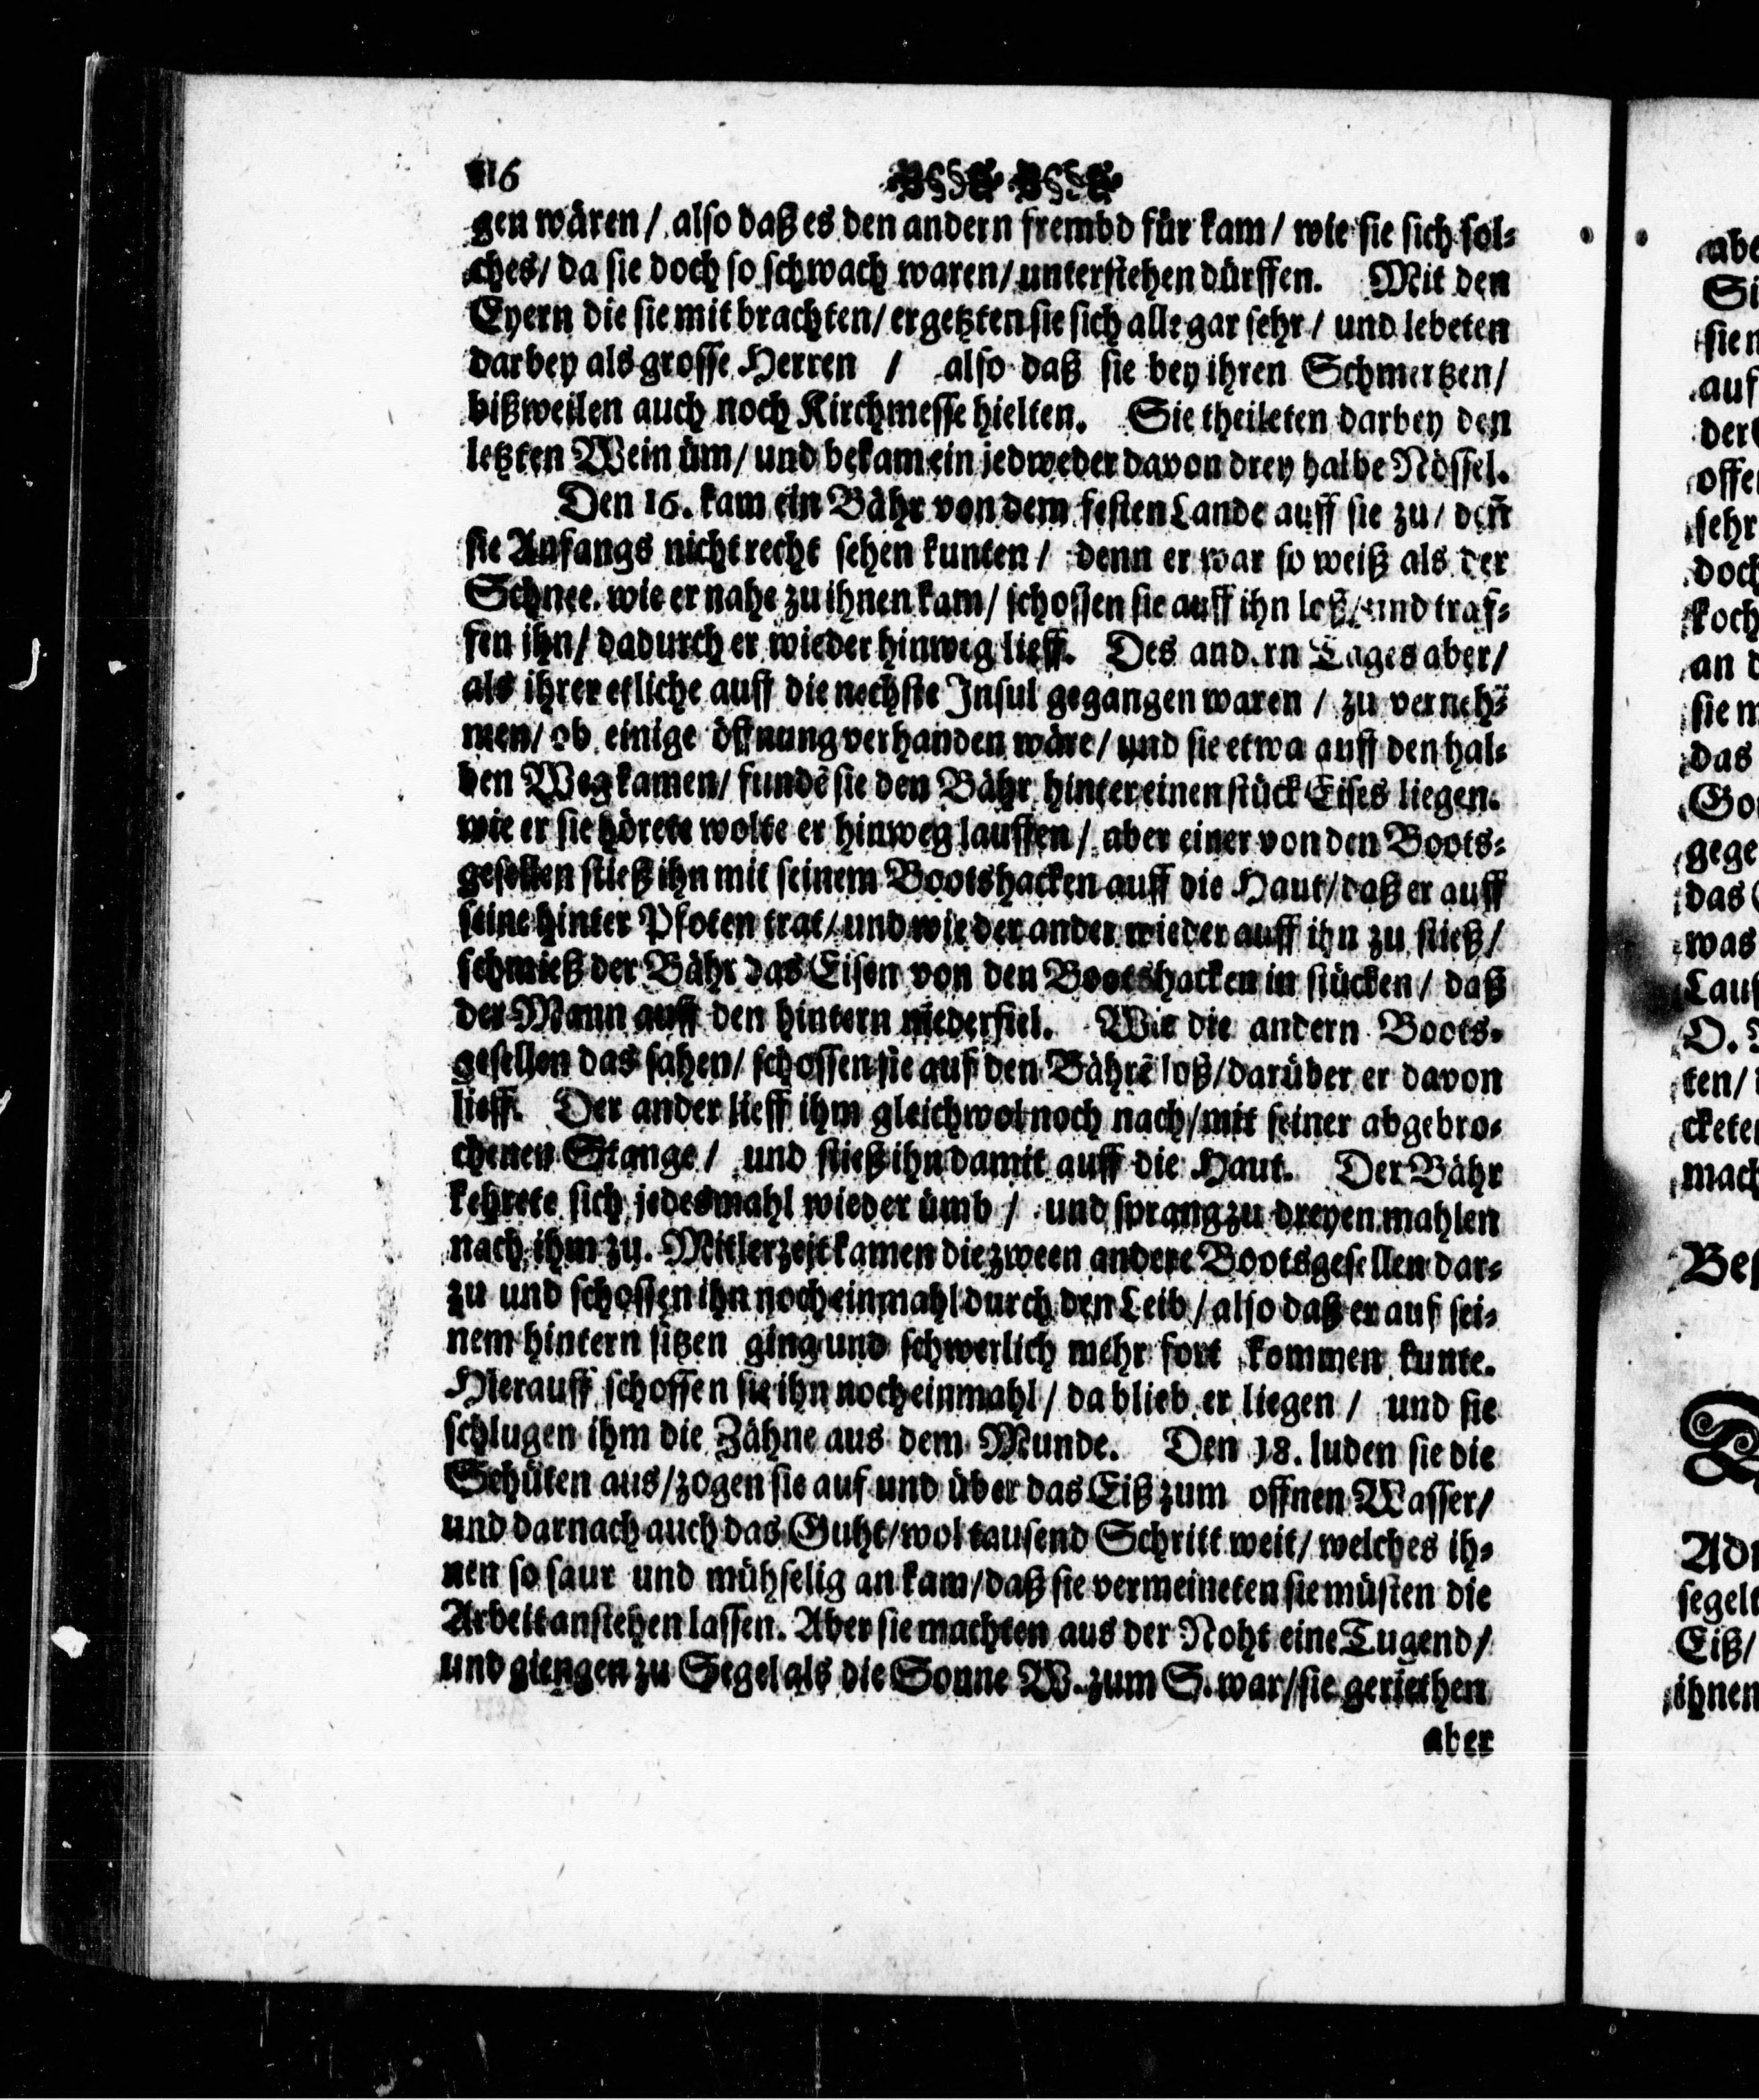 116
gen wären / also daß es den andern frembd für kam / wie sie sich sol-
ches / da sie doch so schwach waren / unterstehen dürffen. Mit den
Eyern die sie mit brachten / ergetzten sie sich alle gar sehr / und lebeten
darbey als grosse Herren / also daß sie bey ihren Schmertzen /
bißweilen auch noch Kirchmesse hielten. Sie theileten darbey den
letzten Wein üm / und bekam ein jedweder davon drey halbe Nössel.
Den 16. kam ein Bähr von dem festen Lande auff sie zu / den
sie Anfangs nicht recht sehen kunten / denn er war so weiß als der
Schnee. wie er nahe zu ihnen kam / schossen sie auff ihn loß / und traf-
fen ihn / dadurch er wieder hinweg lieff. Des andern Tages aber /
als ihrer etliche auff die nechste Insul gegangen waren / zu verneh-
men / ob einige öffnung verhanden wäre / und sie etwa auff den hal-
ben Weg kamen / fundē sie den Bähr hinter einen stück Eises liegen.
wie er sie hörete wolte er hinweg lauffen / aber einer von den Boots-
gesellen stieß ihn mit seinem Bootshacken auff die Haut / daß er auff
seine hinter Pfoten trat / und wie der ander wieder auff ihn zu stieß /
schmieß der Bähr das Eisen von den Bootshacken in stücken / daß
der Mann auff den hintern niederfiel. Wie die andern Boots-
gesellen das sahen / schossen sie auf den Bährē loß / darüber er davon
lieff. Der ander lieff ihm gleichwol noch nach / mit seiner abgebro-
chenen Stange / und stieß ihn damit auff die Haut. Der Bähr
kehrete sich jedesmahl wieder ümb / und sprang zu dreyen mahlen
nach ihm zu. Mitlerzeit kamen die zween andere Bootsgesellen dar-
zu und schossen ihn noch einmahl durch den Leib / also daß er auf sei-
nem hintern sitzen ging und schwerlich mehr fort kommen kunte.
Hierauff schossen sie ihn noch einmahl / da blieb er liegen / und sie
schlugen ihm die Zähne aus dem Munde. Den 18. luden sie die
Schüten aus / zogen sie auf und über das Eiß zum offnen Wasser /
und darnach auch das Guht / wol tausend Schritt weit / welches ih-
nen so saur und mühselig an kam / daß sie vermeineten sie müsten die
Arbeit anstehen lassen. Aber sie machten aus der Noht eine Tugend /
und giengen zu Segel als die Sonne W. zum S. war / sie geriethen
aber